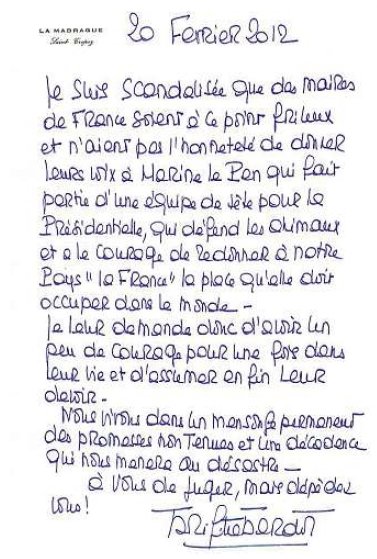 LA MADRAGUE
Saint Tropez
20 Fevrier 2012
Je suis scandalisée que des maires
de France soient à ce point frileux
et n'aient pas l'honneteté de donner
leurs voix à Marine le Pen qui fait
partie d'une équipe de tête pour la
Présidentielle, qui défend les animaux
et a le courage de redonner à notre
Pays "la France" la place qu'elle doit
occuper dans le monde -
Je leur demande donc d'avoir un
peu de courage pour une fois dans
leur vie et d'assumer en fin leur
devoir -
Nous vivons dans un mensonge permanent
des promesses non tenues et une décadence
qui nous menera au désastre -
à vous de juger, mais dépêchez
vous!
Brigitte Bardot